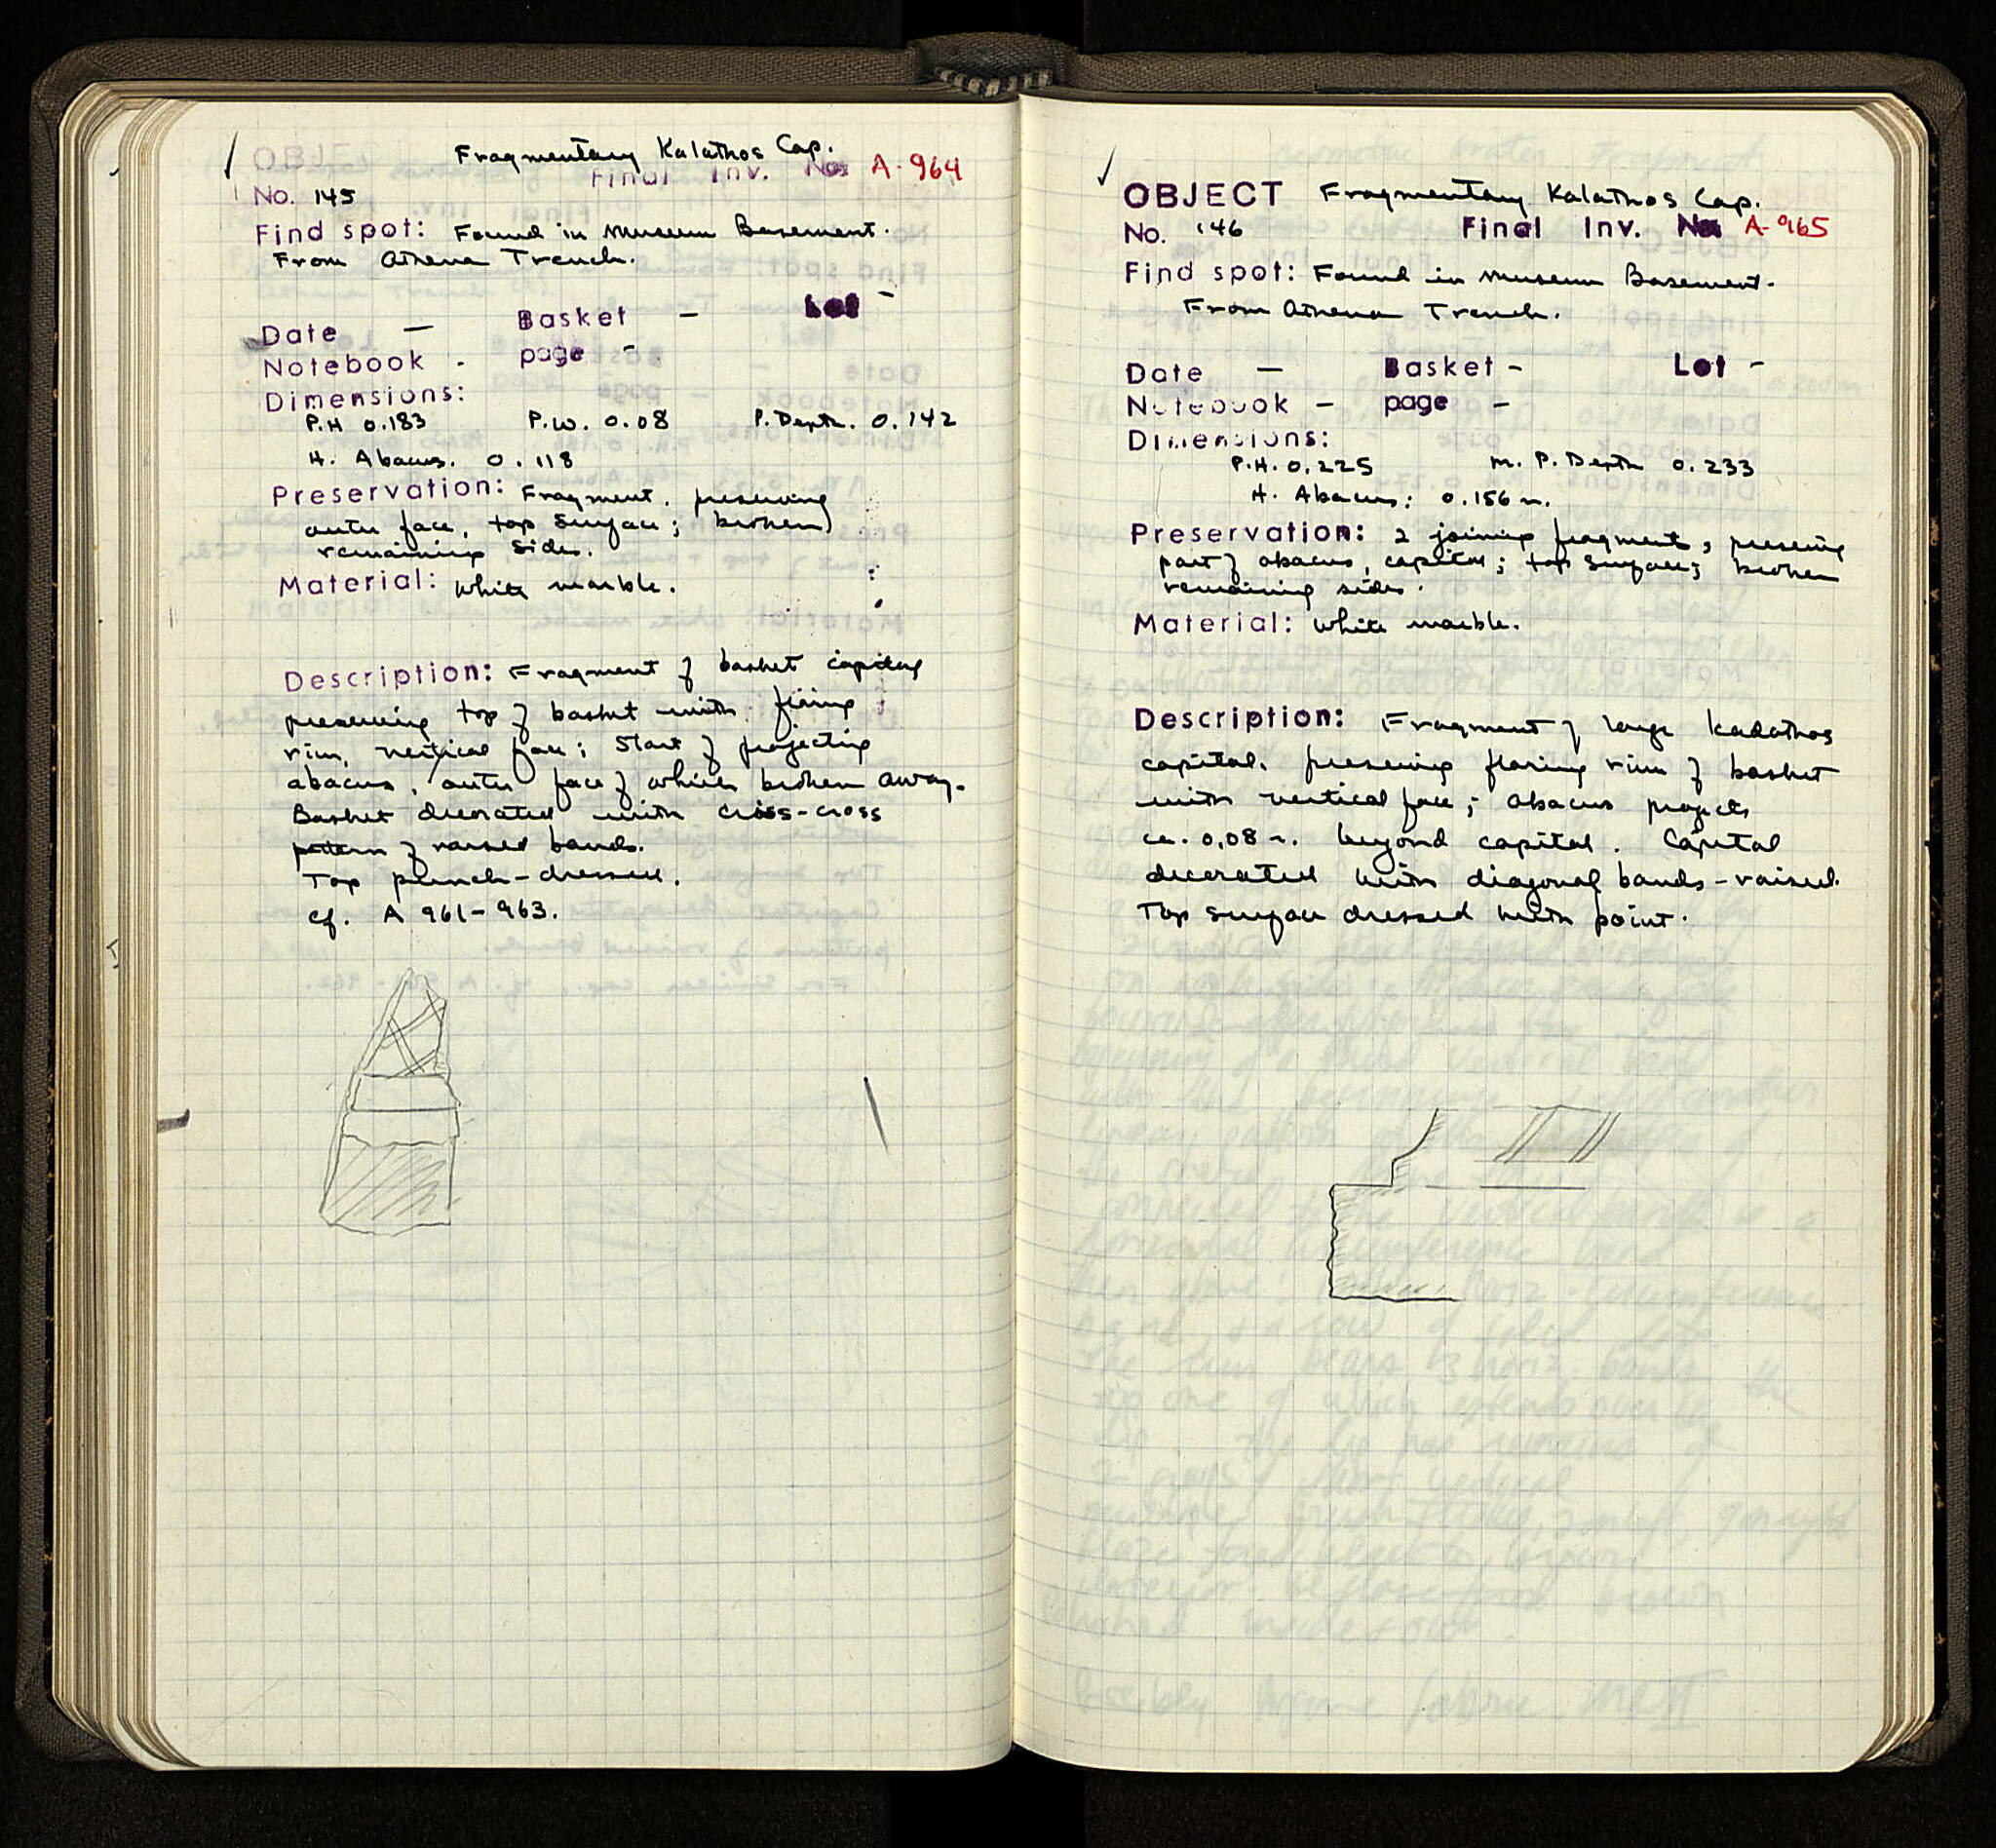 OBJE Fragmentary Kalathos Cap.
Final Inv. No. A-964
No. 145
Find spot: Found in Museum Basement.
From Athena Trench.
Date — Basket — Lot -
Notebook - page -
Dimensions:
P.H 0.183 P.W. 0.08 P. Depth. 0.142
H. Abacus. 0.118
Preservation: Fragment, preserving
outer face, top surface; broken
remaining sides.
Material: White marble.
Description: Fragment of basket capital
preserving top of basket with flaring
rim, vertical face; start of projecting
abacus, outer face of which broken away.
Basket decorated with criss-cross
pattern of raised bands.
Top punch-dressed.
cf. A 961-963.
OBJECT Fragmentary Kalathos Cap.
No. 146 Final Inv. No. A-965
Find spot: Found in Museum Basement.
From Athena Trench.
Date — Basket - Lot -
Notebook - page -
Dimensions:
P.H. 0.225 M. P. Depth 0.233
H. Abacus: 0.156 m.
Preservation: 2 joining fragments, preserving
part of abacus, capital; top surface; broken
remaining sides.
Material: White marble.
Description: Fragment of large kadathos
capital. preserving flaring rim of basket
with vertical face; abacus projects
ca. 0,08 m. beyond capital. Capital
decorated with diagonal bands-raised.
Top surface dressed with point.